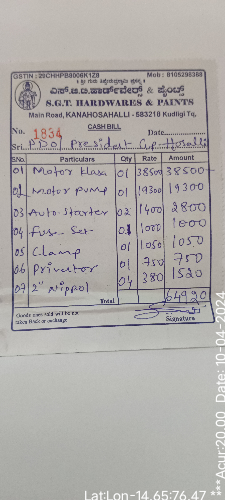 GSTIN : 29CHHPB8006K1Z8 Mob : 8105298388
ಎಸ್.ಜಿ.ಟಿ.ಹಾರ್ಡ್‌ವೇರ್ಸ್ & ಪೈಂಟ್ಸ್
S.G.T. HARDWARES & PAINTS
Main Road, KANAHOSAHALLI - 583218 Kudligi Tq.
CASH BILL
No. 1834 Date
Sri. PDO, President G.P. Hosalli
SNo. Particulars Qty Rate Amount
01 Motor 01 38500 38500
01 Motor pump 01 19300 19300
03 Auto Starter 02 1400 2800
04 Fuse Set 01 1000 1000
05 Clamp 01 1050 1050
06 01 750 750
07 2" nippol 04 380 1520
Total 64920
Goods once sold will be not
taken Back or exchange
Signature
Lat:Lon-14.65:76.47 ***Acur:20.00 Date: 10-04-2024